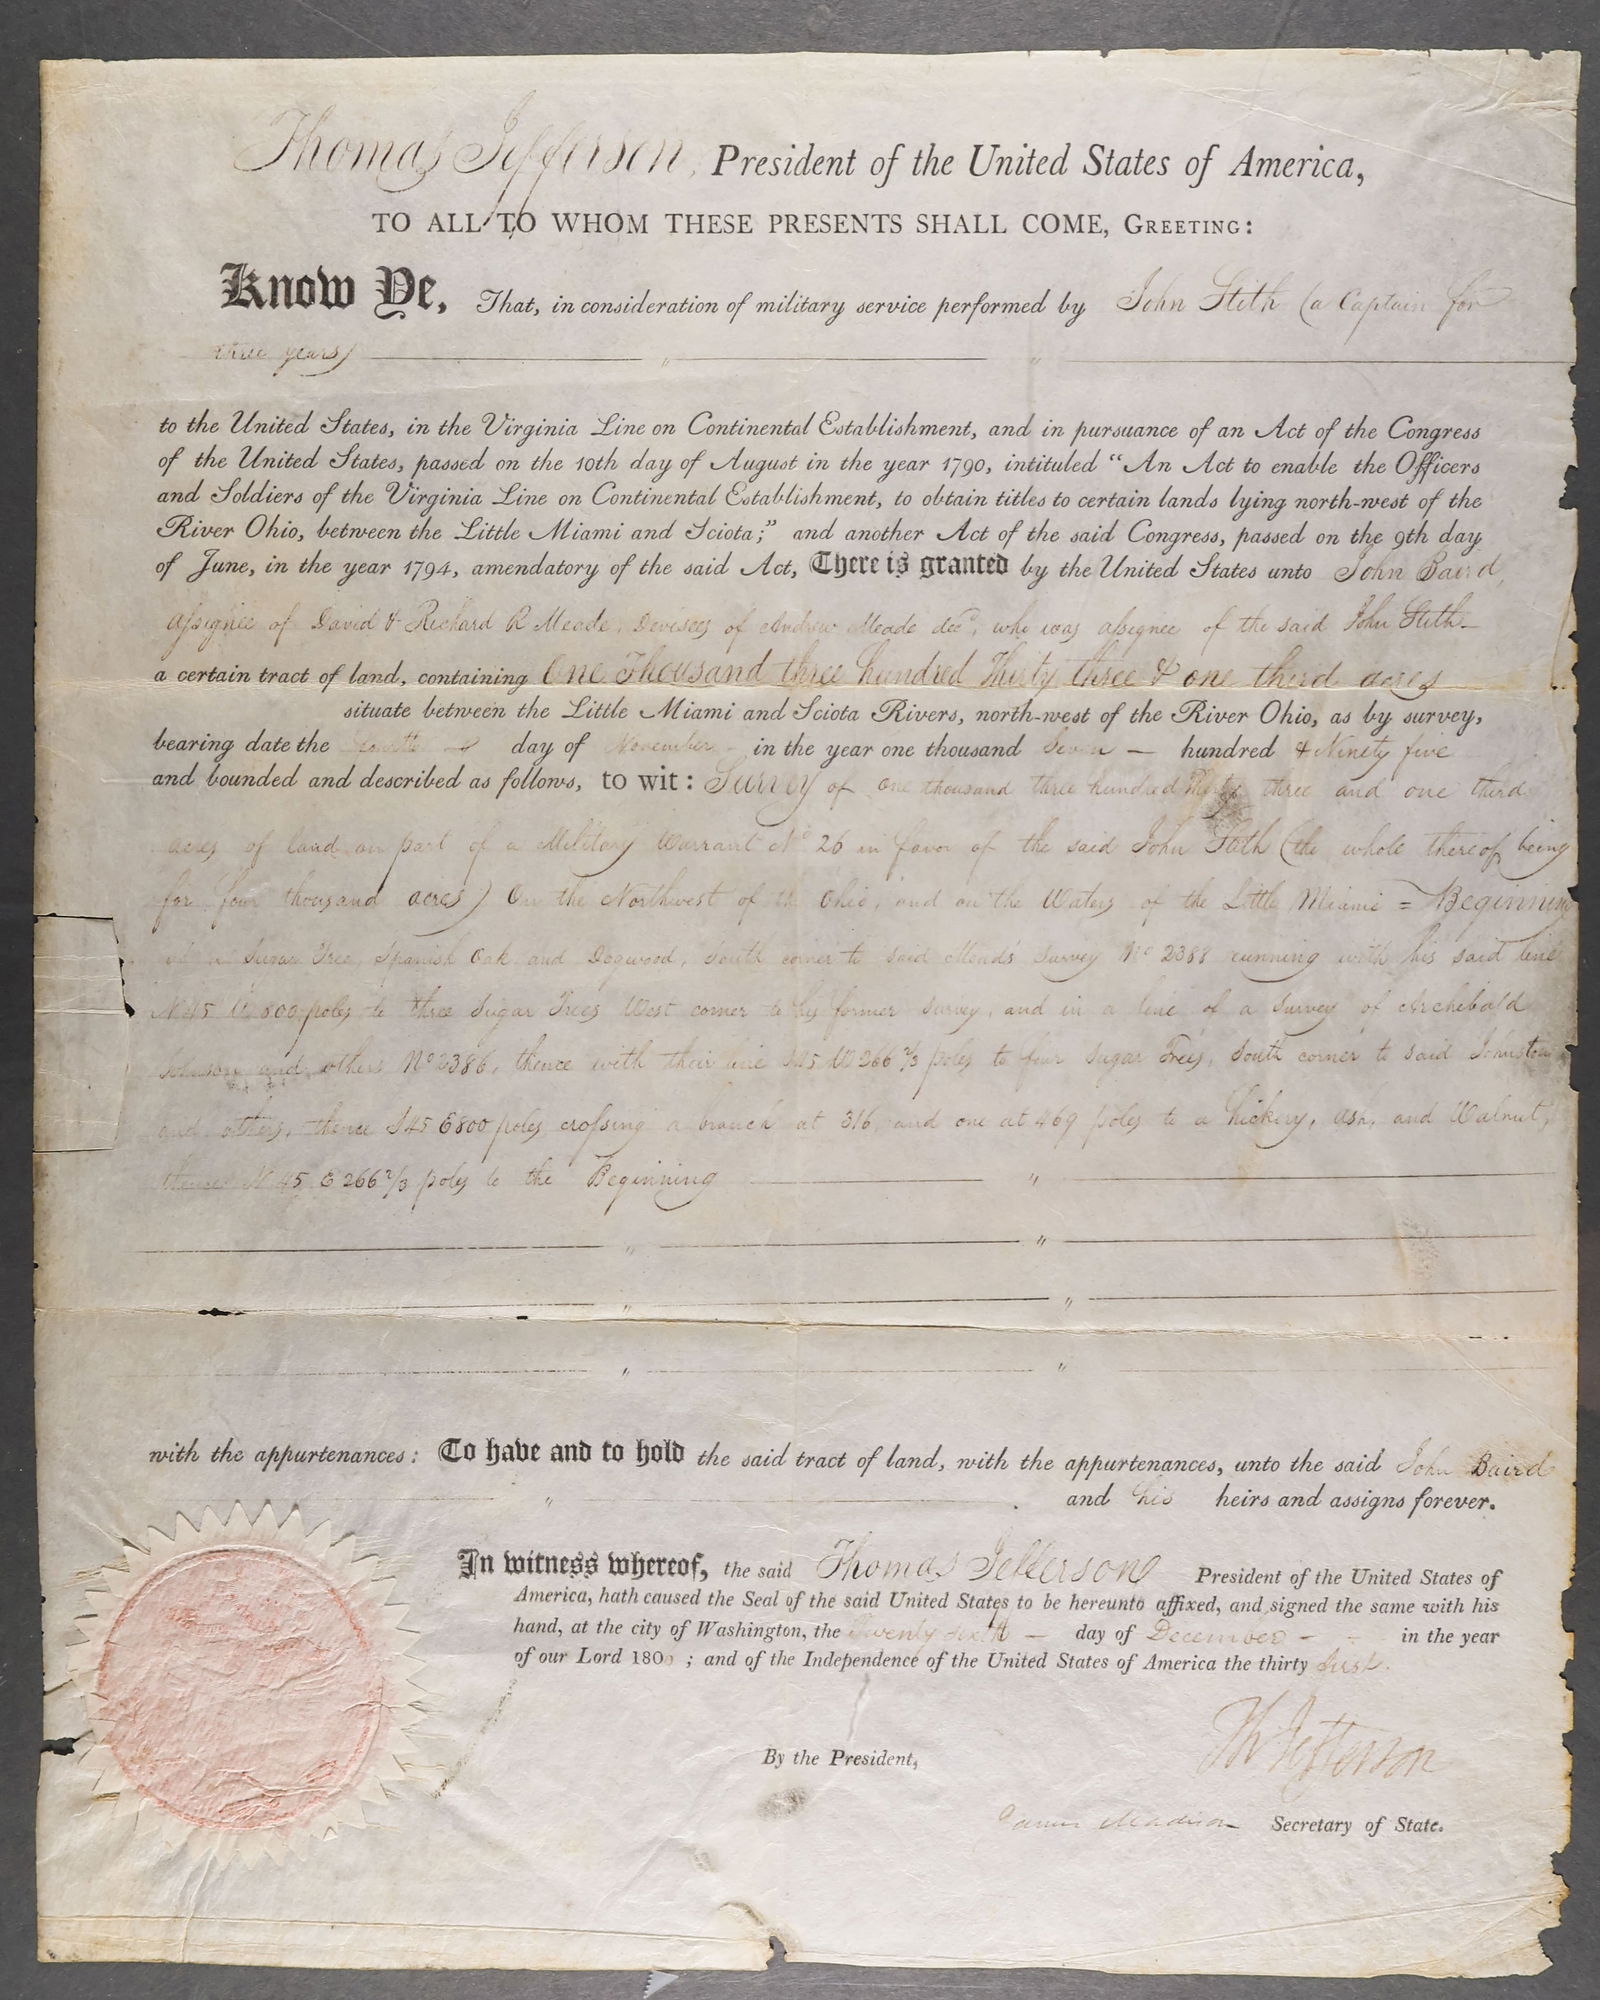 Thomas Jefferson, President of the United States of America,
TO ALL TO WHOM THESE PRESENTS SHALL COME, GREETING:
Know Ye, That, in consideration of military service performed by John Steth (a Captain for
three years)
to the United States, in the Virginia Line on Continental Establishment, and in pursuance of an Act of the Congress
of the United States, passed on the 10th day of August in the year 1790, intituled “An Act to enable the Officers
and Soldiers of the Virginia Line on Continental Establishment, to obtain titles to certain lands lying north-west of the
River Ohio, between the Little Miami and Sciota;” and another Act of the said Congress, passed on the 9th day
of June, in the year 1794, amendatory of the said Act, There is granted by the United States unto John Baird,
assignee of David & Richard R Meade, Devisees of Andrew Meade decd, who was assignee of the said John Steth
a certain tract of land, containing One Thousand three hundred Thirty three & one third acres
situate between the Little Miami and Sciota Rivers, north-west of the River Ohio, as by survey,
bearing date the fourth day of November in the year one thousand Seven hundred & Ninety five
and bounded and described as follows, to wit: Survey of One thousand three hundred Thirty three and one third
acres of land on part of a Military Warrant No 26 in favor of the said John Steth (the whole thereof being
for four thousand acres) On the Northwest of the Ohio, and on the Waters of the Little Miami = Beginning
at a Sugar Tree, Spanish Oak and Dogwood, South corner to said Meads Survey No 2388 running with his said line
N 45 W 800 poles to three Sugar Trees West corner to his former survey, and in a line of a Survey of Archibald
Johnson and others No 2386, thence with their line S45 W 266 2/3 poles to four Sugar Trees, South corner to said Johnston
and others, thence S45 E 800 poles crossing a branch at 316, and one at 469 poles to a hickery, ash, and Walnut,
thence N 45 E 266 2/3 poles to the Beginning
with the appurtenances: To have and to hold the said tract of land, with the appurtenances, unto the said John Baird
and his heirs and assigns forever.
In witness whereof, the said Thomas Jefferson President of the United States of
America, hath caused the Seal of the said United States to be hereunto affixed, and signed the same with his
hand, at the city of Washington, the Twenty sixth day of December in the year
of our Lord 180 ; and of the Independence of the United States of America the thirty first.
Th Jefferson
By the President,
James Madison Secretary of State.